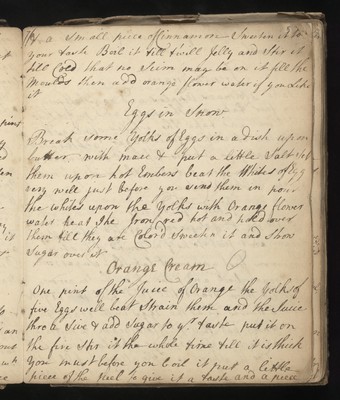 a Small piece of Cinnamon Sweeten it to
your taste Boil it till twill Jelly and Stir it
till Cold that no Scim may be on it fill the
Moulds then add orange flower water if you Like
it
Eggs in Snow
Break Some Yolks of Eggs in a dish upon
butter with mace & put a Little Salt Set
them upon hot Embers beat the Whites of Egg
very well Just before you send them in pour
the whites upon the Yolks with Orange flower
water heat the Iron red hot and hold over
them till they are Colord Sweeten it and Strow
Sugar over it
Orange Cream
One pint of the Juice of Orange the Yolks of
five Eggs well beat Strain them and the Juice
thro a Sive & add Sugar to yr taste put it on
the fire Stir it the whole time till it is thick
You must before you boil it put a Little
piece of the Peel to give it a taste and a piece